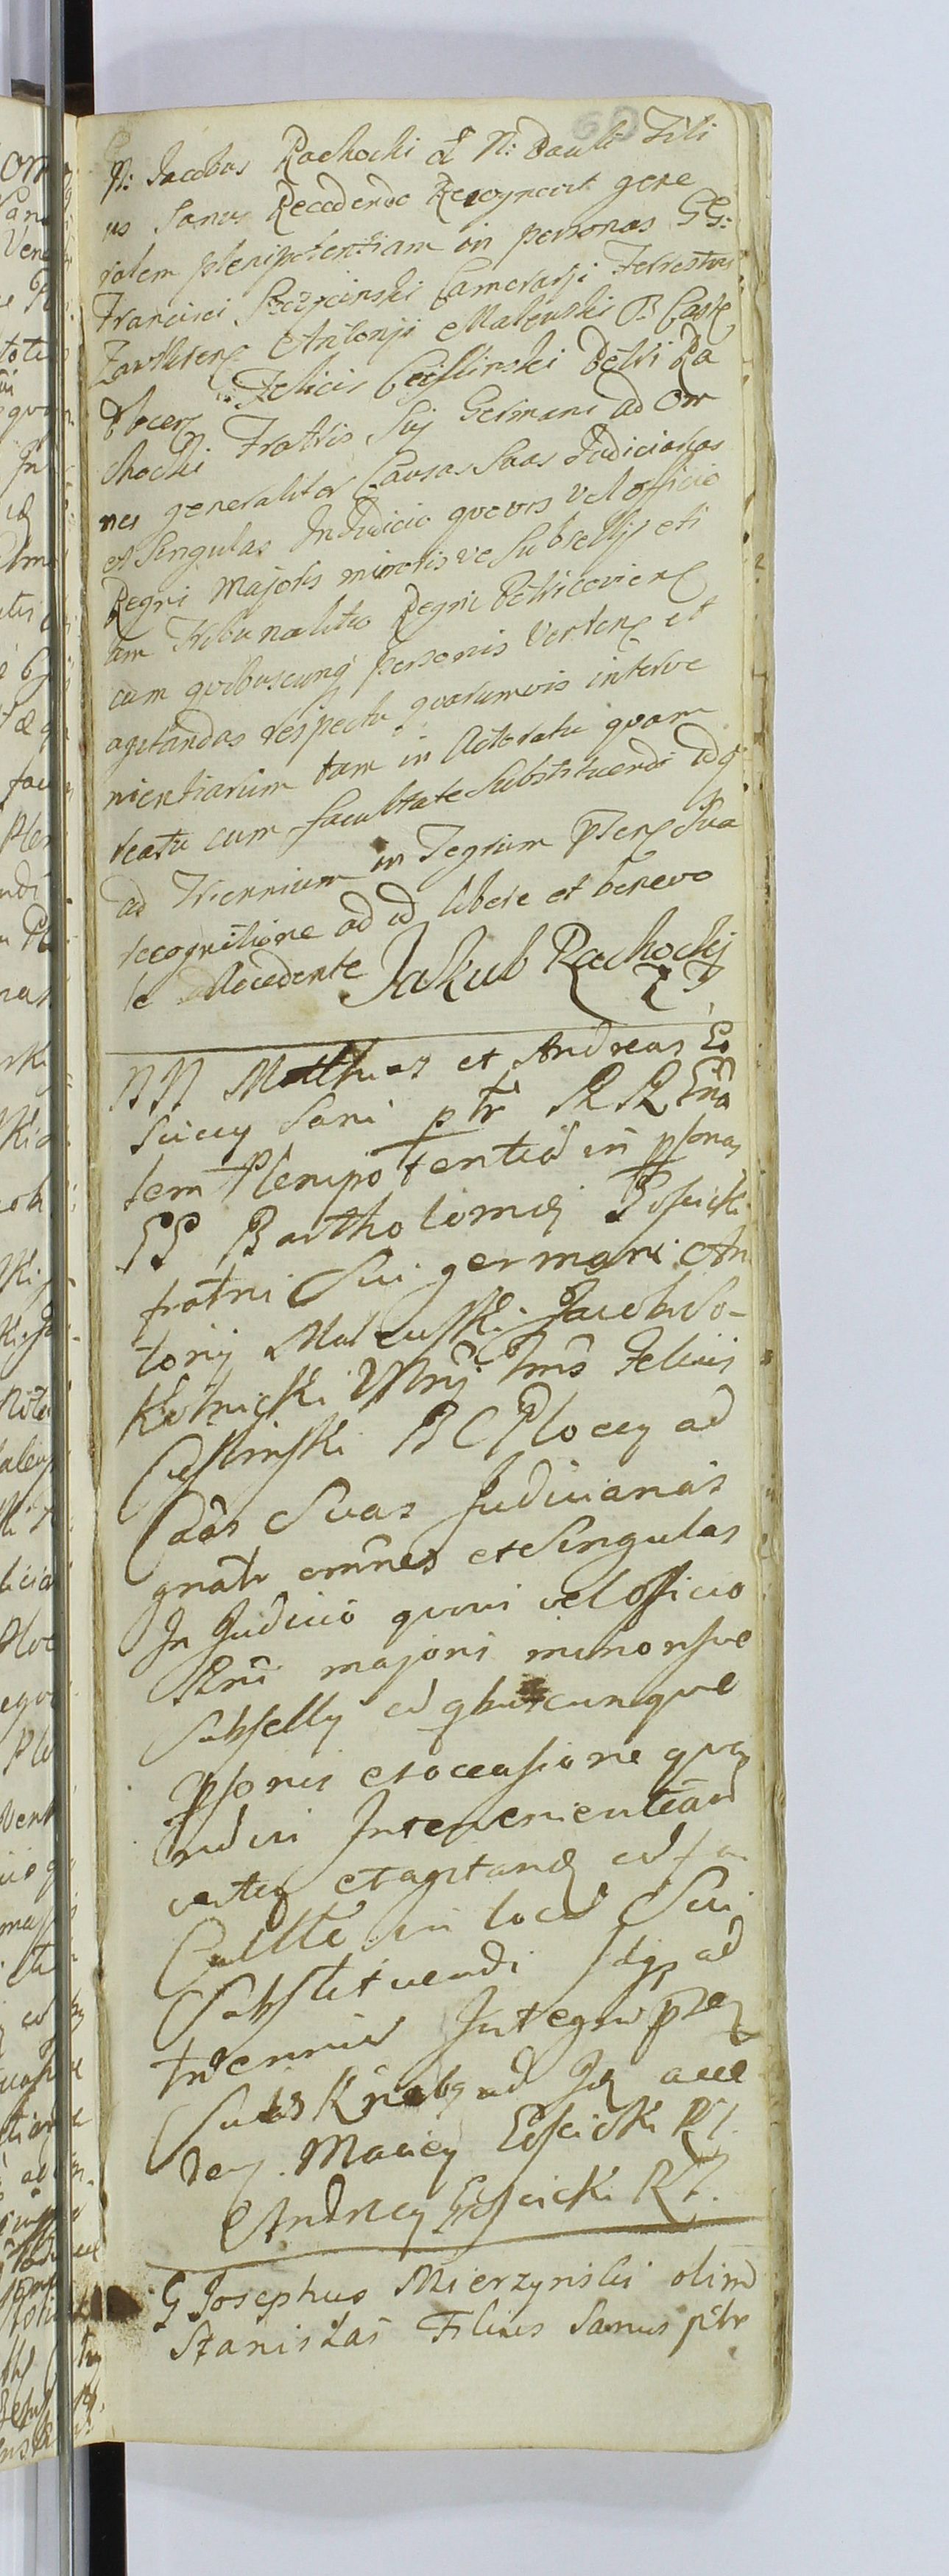 60
N: Jacobus Rachocki ol N: Pauli Fili
us Sanus Recedendo Recognovit gene
ralem plenipotentiam in personas GG:
Francisci Camerarij Terrestris
Zawkren Antonji Malewski B: Castr
Plocen Felicis Cieslinski Petri Ra
chocki Fratris Sui Germani ad Om
nes generaliter Causas Suas Judiciarias
et Singulas In Judicio quovis Vel officio
Regni Majoris minorisve Subsellij eti
am Tribunalitio Regni Petricovien
cum quibuscunq personis Verten et
agitandas respectu quarumvis interve
nientiarum tam in Actoratu quam
reatu cum facultate Substituendi idq
ad Triennium in Tegrum pten Sua
recognitione ad id libere et benevo
le Accedente Jakub Rachockj
NN Matthias et Andreas
Sani ptr RR Gna
lem Plenipotentia in psonas
GG Bartholomei
fratri Sui germani An
tonij Malewski Jacobi So-
kolnicki Felicis
Cieslinski B C Plocen ad
Caas Suas Judiciarias
gnatr omnes et Singulas
In Judicio quovi vel officio
Rni majori minorisve
Subselly cu qbuscunque
psonis et occasione
Interveniential
et agitand cu fa
Cultte in locu Sui
Substituendi idq ad
trienniu Integru pten
ad Id acce
den. Maciey
Andrzey
G Josephus Mierzynski olim
Stanislai Filius Sanus ptr